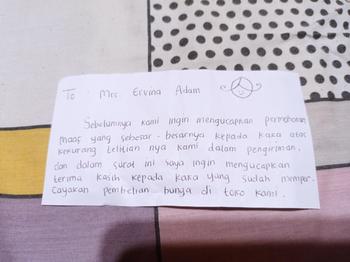 To : Mrs. Ervina Adam
Sebelumnya kami ingin mengucapkan permohonan
maaf yang sebesar-besarnya kepada kaka atas
kekurang telitian nya kami dalam pengiriman,
dan dalam surat ini saya ingin mengucapkan
terima kasih kepada kaka yang sudah memper-
cayakan pembelian bunga di toko kami.